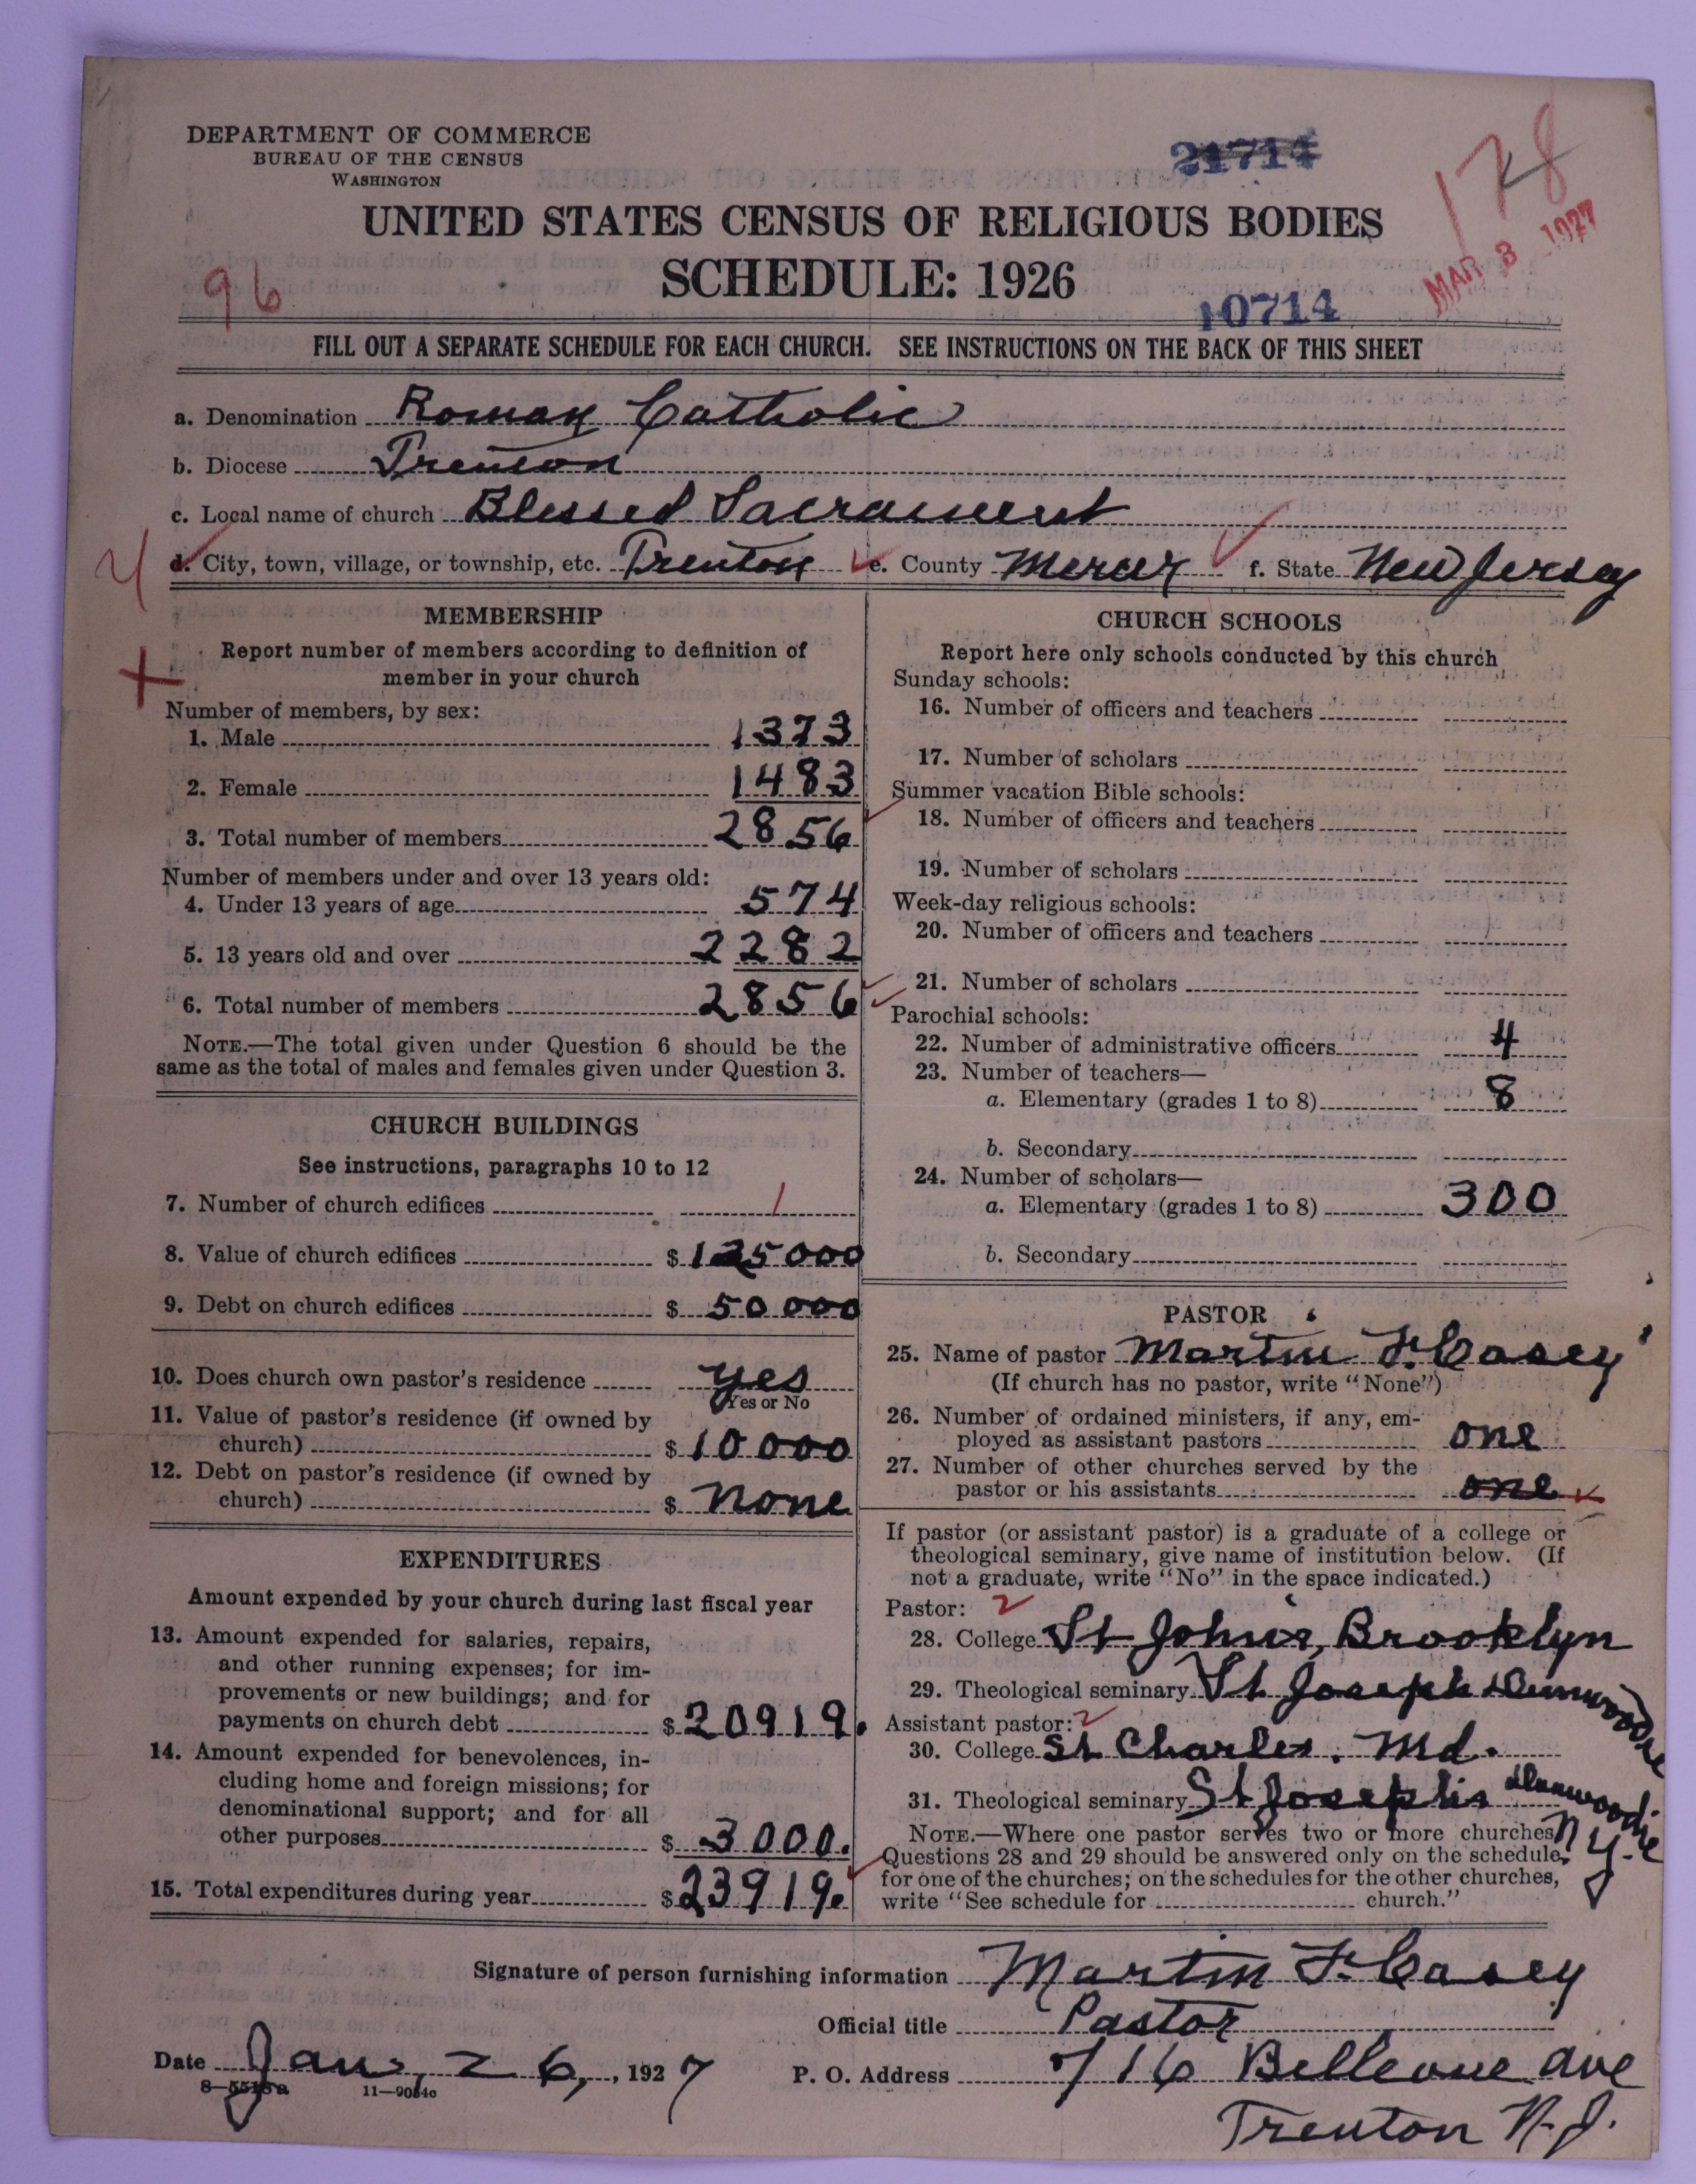 DEPARTMENT OF COMMERCE
BUREAU OF THE CENSUS
WASHINGTON
21714
178
UNITED STATES CENSUS OF RELIGIOUS BODIES
MAR 3 1927
96
SCHEDULE: 1926
10714
FILL OUT A SEPARATE SCHEDULE FOR EACH CHURCH. SEE INSTRUCTIONS ON THE BACK OF THIS SHEET
a. Denomination Roman Catholic
b. Diocese Trenton
c. Local name of church Blessed Sacrament
d. City, town, village, or township, etc. Trenton e. County Mercer f. State New Jersey
MEMBERSHIP
Report number of members according to definition of
member in your church
Number of members, by sex:
1. Male 1373
2. Female 1483
3. Total number of members 2856
Number of members under and over 13 years old:
4. Under 13 years of age 574
5. 13 years old and over 2282
6. Total number of members 2856
NOTE.—The total given under Question 6 should be the
same as the total of males and females given under Question 3.
CHURCH BUILDINGS
See instructions, paragraphs 10 to 12
7. Number of church edifices 1
8. Value of church edifices $ 125000
9. Debt on church edifices $ 50000
10. Does church own pastor's residence yes
Yes or No
11. Value of pastor's residence (if owned by
church) $ 10000
12. Debt on pastor's residence (if owned by
church) $ none
EXPENDITURES
Amount expended by your church during last fiscal year
13. Amount expended for salaries, repairs,
and other running expenses; for im-
provements or new buildings; and for
payments on church debt $ 20919.
14. Amount expended for benevolences, in-
cluding home and foreign missions; for
denominational support; and for all
other purposes $ 3000.
15. Total expenditures during year $ 23919.
CHURCH SCHOOLS
Report here only schools conducted by this church
Sunday schools:
16. Number of officers and teachers
17. Number of scholars
Summer vacation Bible schools:
18. Number of officers and teachers
19. Number of scholars
Week-day religious schools:
20. Number of officers and teachers
21. Number of scholars
Parochial schools:
22. Number of administrative officers 4
23. Number of teachers—
a. Elementary (grades 1 to 8) 8
b. Secondary
24. Number of scholars—
a. Elementary (grades 1 to 8) 300
b. Secondary
PASTOR
25. Name of pastor Martin F. Casey
(If church has no pastor, write "None")
26. Number of ordained ministers, if any, em-
ployed as assistant pastors one
27. Number of other churches served by the
pastor or his assistants one
If pastor (or assistant pastor) is a graduate of a college or
theological seminary, give name of institution below. (If
not a graduate, write "No" in the space indicated.)
Pastor:
28. College St John's, Brooklyn
29. Theological seminary St Joseph Dunwoodie
Assistant pastor:
30. College St Charles. Md.
31. Theological seminary St Josephs Dunwoodie
N.Y.
NOTE.—Where one pastor serves two or more churches,
Questions 28 and 29 should be answered only on the schedule
for one of the churches; on the schedules for the other churches,
write "See schedule for church."
Signature of person furnishing information Martin F. Casey
Official title Pastor
Date Jan, 26, 1927 P. O. Address 716 Bellevue ave
8—5518a 11—9084c
Trenton N.J.